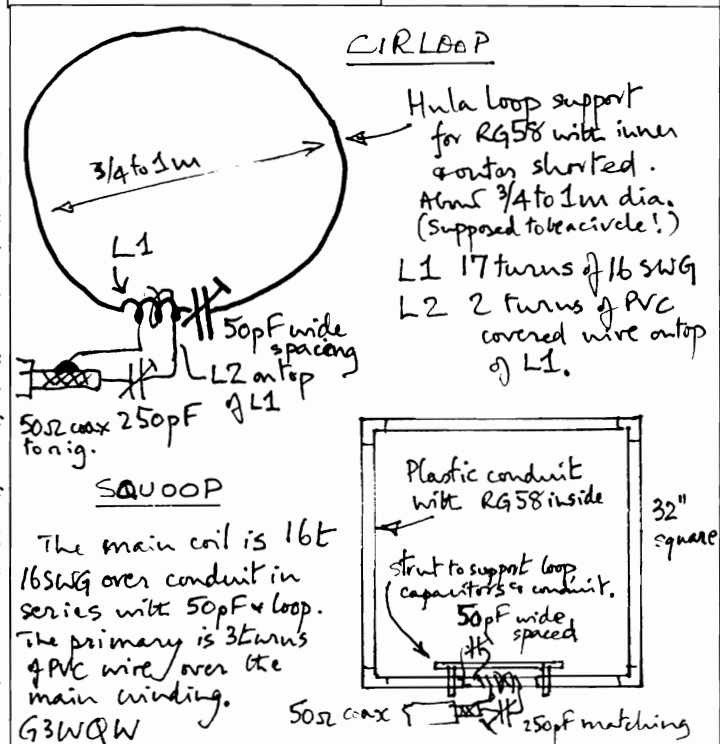 CIRLOOP
Hula loop support
for RG58 with inner
& outer shorted.
About 3/4 to 1m dia.
(Supposed to be a circle!)
L1 17 turns of 16 SWG
L2 2 turns of PVC
covered wire on top
of L1.
3/4 to 1m
L1
50pF wide
spacing
L2 on top
of L1
250pF
50Ω coax
to rig.
SQUOOP
The main coil is 16t
16SWG over conduit in
series with 50pF & loop.
The primary is 3turns
of PVC wire over the
main winding.
G3WQW
Plastic conduit
with RG58 inside
32"
square
strut to support loop
capacitors & conduit.
50pF wide
spaced
50Ω coax
250pF matching